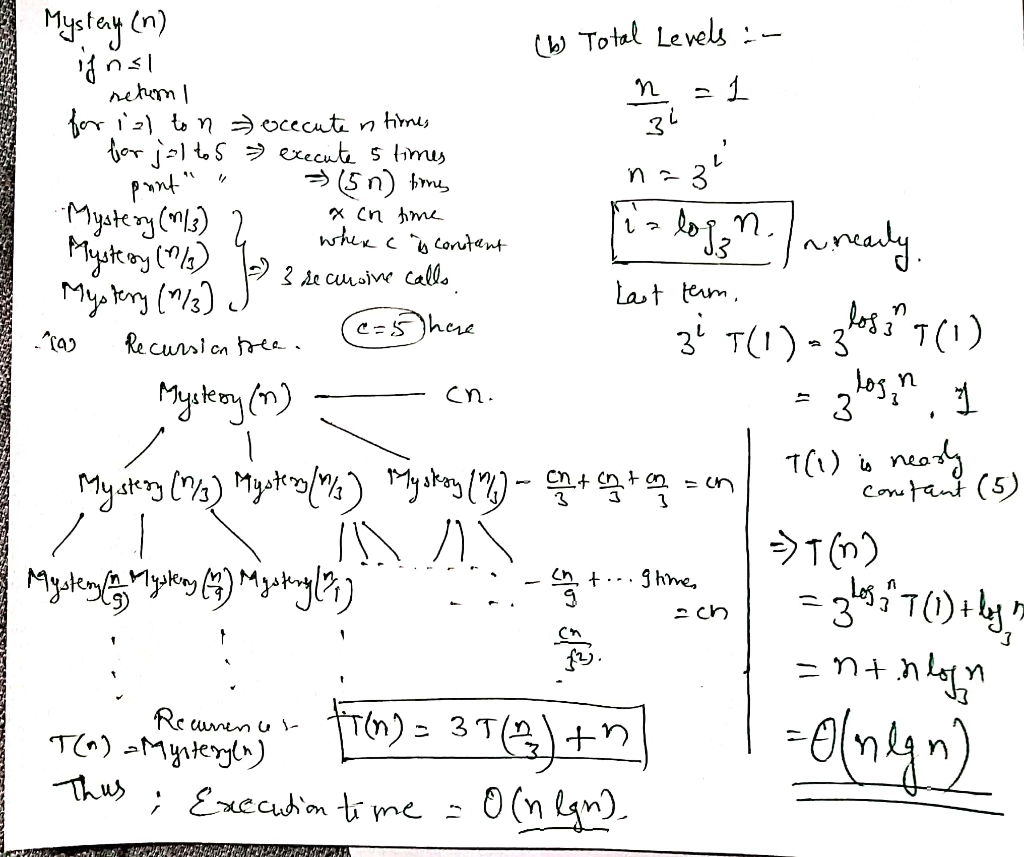 Mystery (n)
if n ≤ 1
return 1
for i=1 to n ⇒ execute n times
for j=1 to 5 ⇒ execute 5 times
print " " ⇒ (5n) times
Mystery (n/3)
Mystery (n/3)
Mystery (n/3)
⇒ 3 recursive calls.
∝ cn time
where c is constant
c=5 here
(a) Recursion tree.
Mystery (n) — cn.
Mystery (n/3) Mystery (n/3) Mystery (n/3) - cn/3 + cn/3 + cn/3 = cn
Mystery (n/9) Mystery (n/9) Mystery (n/9) ........ - cn/9 + ... 9 times
= cn
Recurrence :-
T(n) = Mystery(n)
T(n) = 3T(n/3) + n
Thus ; Execution time = O(n lgn).
(b) Total Levels :-
n/3^i = 1
n = 3^i
i = log_3 n. ~ nearly.
Last term.
3^i T(1) = 3^(log_3 n) T(1)
= 3^(log_3 n) . 1
T(1) is nearly
constant (5)
⇒ T(n)
= 3^(log_3 n) T(1) + log_3 n
= n + n log_3 n
= Θ(n lg n)